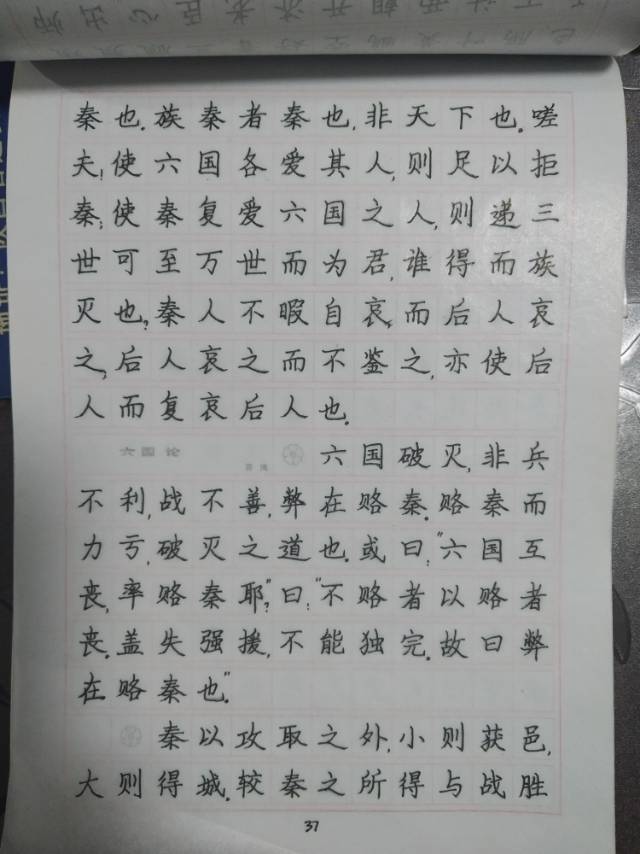 秦也。族秦者秦也,非天下也。嗟
夫!使六国各爱其人,则足以拒
秦;使秦复爱六国之人,则递三
世可至万世而为君,谁得而族
灭也?秦人不暇自哀,而后人哀
之;后人哀之而不鉴之,亦使后
人而复哀后人也。
六国论
苏洵
六国破灭,非兵
不利,战不善,弊在赂秦。赂秦而
力亏,破灭之道也。或曰:“六国互
丧,率赂秦耶?”曰:“不赂者以赂者
丧。盖失强援,不能独完。故曰弊
在赂秦也。”
秦以攻取之外,小则获邑,
大则得城。较秦之所得与战胜
37